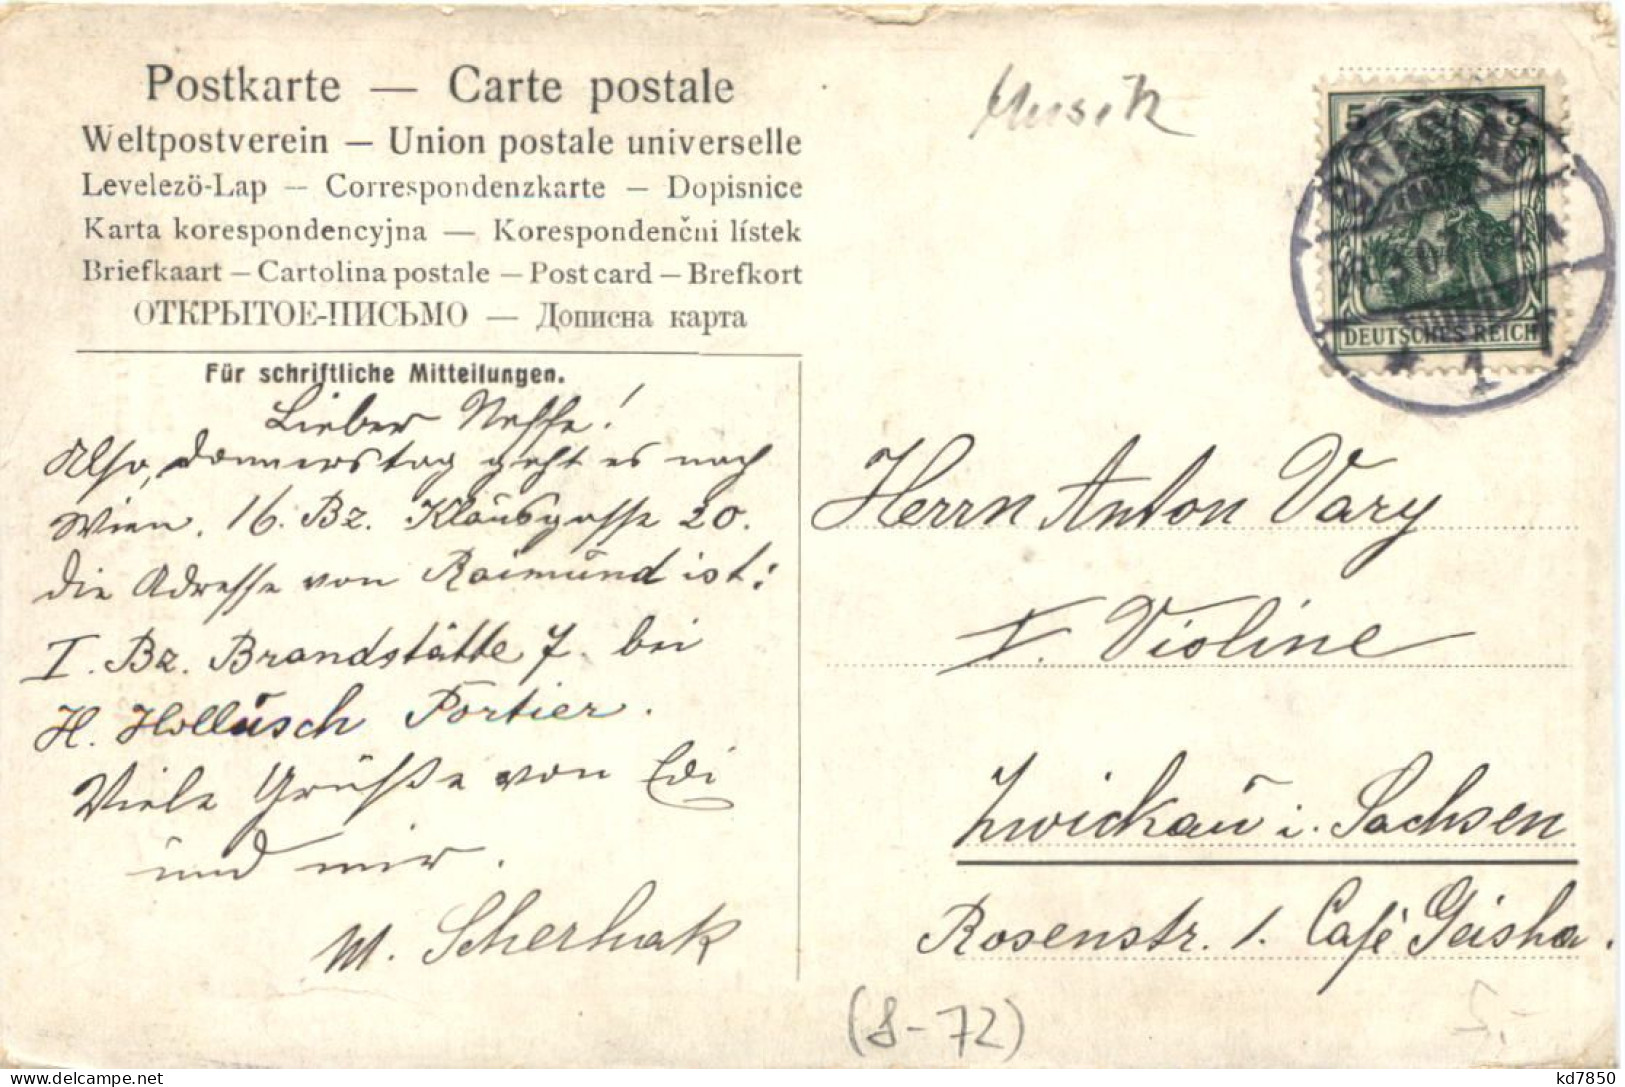 Postkarte — Carte postale
Weltpostverein — Union postale universelle
Levelező-Lap — Correspondenzkarte — Dopisnice
Karta korespondencyjna — Korespondenčni lístek
Briefkaart — Cartolina postale — Post card — Brefkort
ОТКРЫТОЕ-ПИСЬМО — Дописна карта
Für schriftliche Mitteilungen.
Musik
5 5
DEUTSCHES REICH
1
Lieber Neffe!
Also, Donnerstag geht es nach
Wien. 16. Bz. Klausgasse 20.
Die Adresse von Raimund ist:
I. Bz. Brandstätte 7. bei
H. Hollusch Portier.
Viele Grüße von Edi
und mir.
M. Scherhak
Herrn Anton Vary
I. Violine
Zwickau i. Sachsen
Rosenstr. 1. Café Geisha.
(S-72)
5.-
kd7850